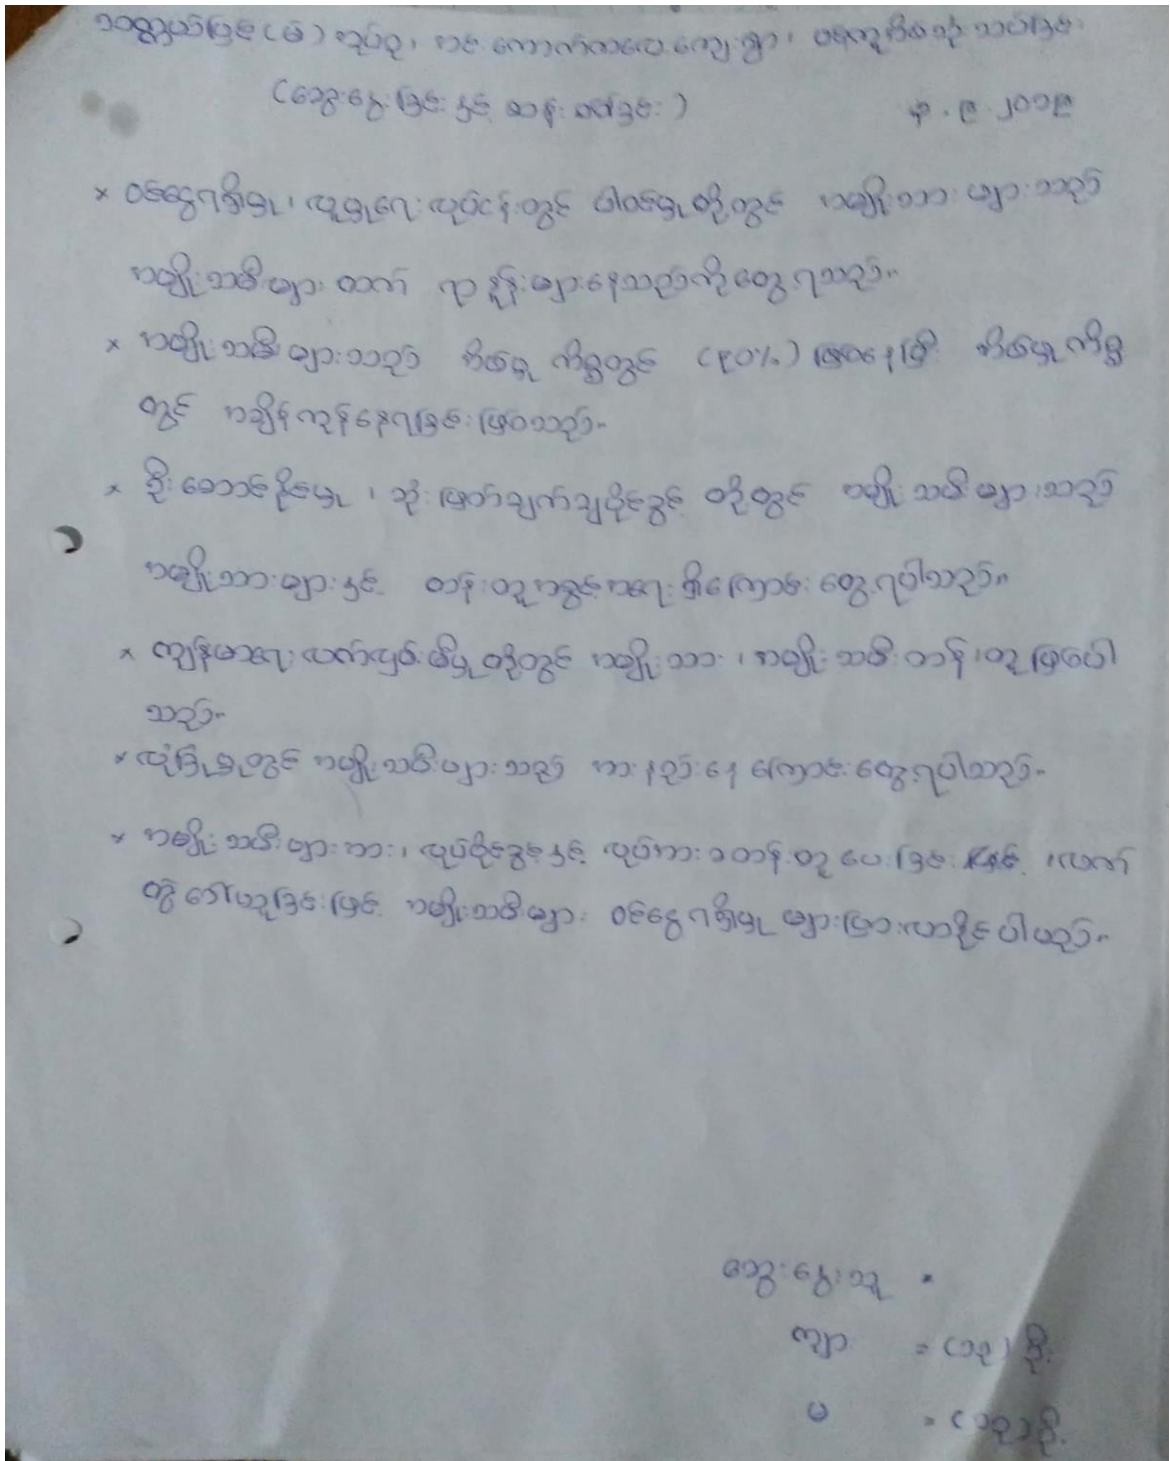 သတ္တမမြောက်(မ) အုပ်စု၊ အင်းကောက်ကလေးကျေးရွာ၊
(ဆွေးနွေးခြင်းနှင့် ဆန်းစစ်ခြင်း) ၅.၉.၂၀၁၉
× ဝင်ငွေရရှိမှု၊ လူမှုရေးလုပ်ငန်းတွင် ပါဝင်မှုတို့တွင် အမျိုးသားများသည်
အမျိုးသမီးများထက် ရာနှုန်းများနေသည်ကိုတွေ့ရသည်။
× အမျိုးသမီးများသည် အိမ်မှုကိစ္စတွင် (၉၀%) ဖြစ်နေပြီး အိမ်မှုကိစ္စ
တွင် အချိန်ကုန်နေရခြင်းဖြစ်သည်။
× ဦးဆောင်နိုင်မှု၊ ဆုံးဖြတ်ချက်ချပိုင်ခွင့် တို့တွင် အမျိုးသမီးများသည်
အမျိုးသားများနှင့် တန်းတူအခွင့်အရေးရှိကြောင်းတွေ့ရပါသည်။
× ကျန်းမာရေးလက်လှမ်းမီမှုတို့တွင် အမျိုးသား၊ အမျိုးသမီးတန်းတူဖြစ်ပေါ်
သည်။
× လုံခြုံမှုတွင် အမျိုးသမီးများသည် အားနည်းနေကြောင်းတွေ့ရပါသည်။
× အမျိုးသမီးများအား၊ လုပ်ပိုင်ခွင့်နှင့် လုပ်အားခတန်းတူပေးခြင်း ၊လက်
တွဲခေါ်ယူခြင်းဖြင့် အမျိုးသမီးများ ဝင်ငွေရရှိမှု များပြားလာနိုင်ပါမည်။
ဆွေးနွေးသူ =
ကျား = (၁၃) ဦး
မ = (၁၃) ဦး